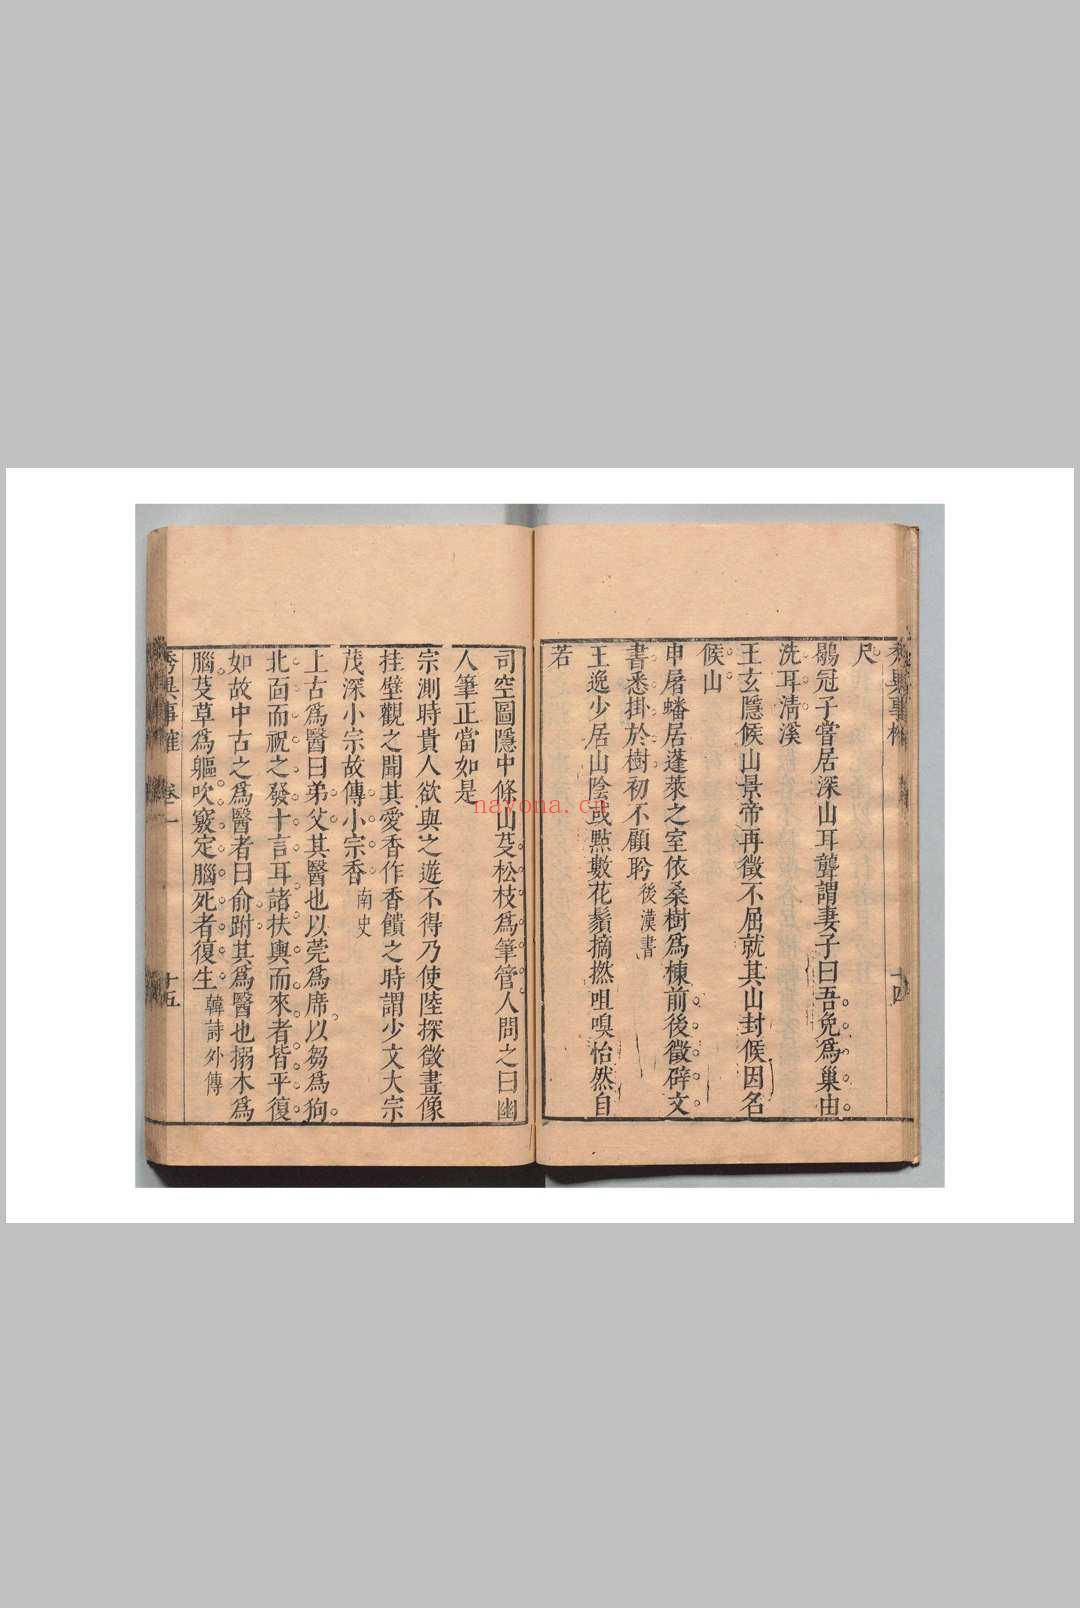 尺
鶡冠子嘗居深山耳聾謂妻子曰吾免爲巢由
洗耳清溪
王玄隱候山景帝再徵不屈就其山封候因名
候山
申屠蟠居蓬萊之室依桑樹爲棟前後徵辟文
書悉掛於樹初不顧盻後漢書
王逸少居山陰或㸃數花鬚摘撚咀嗅怡然自
若
十四
司空圖隱中條山芟松枝爲筆管人問之曰幽
人筆正當如是
宗測時貴人欲與之遊不得乃使陸探徵畫像
挂壁觀之聞其愛香作香饋之時謂少文大宗
茂深小宗故傳小宗香南史
上古爲醫曰弟父其醫也以莞爲席以芻爲狗
北面而祝之發十言耳諸扶輿而來者皆平復
如故中古之爲醫者曰俞跗其爲醫也搦木爲
腦芟草爲軀吹竅定腦死者復生韓詩外傳
卷一
十五
navona.cn